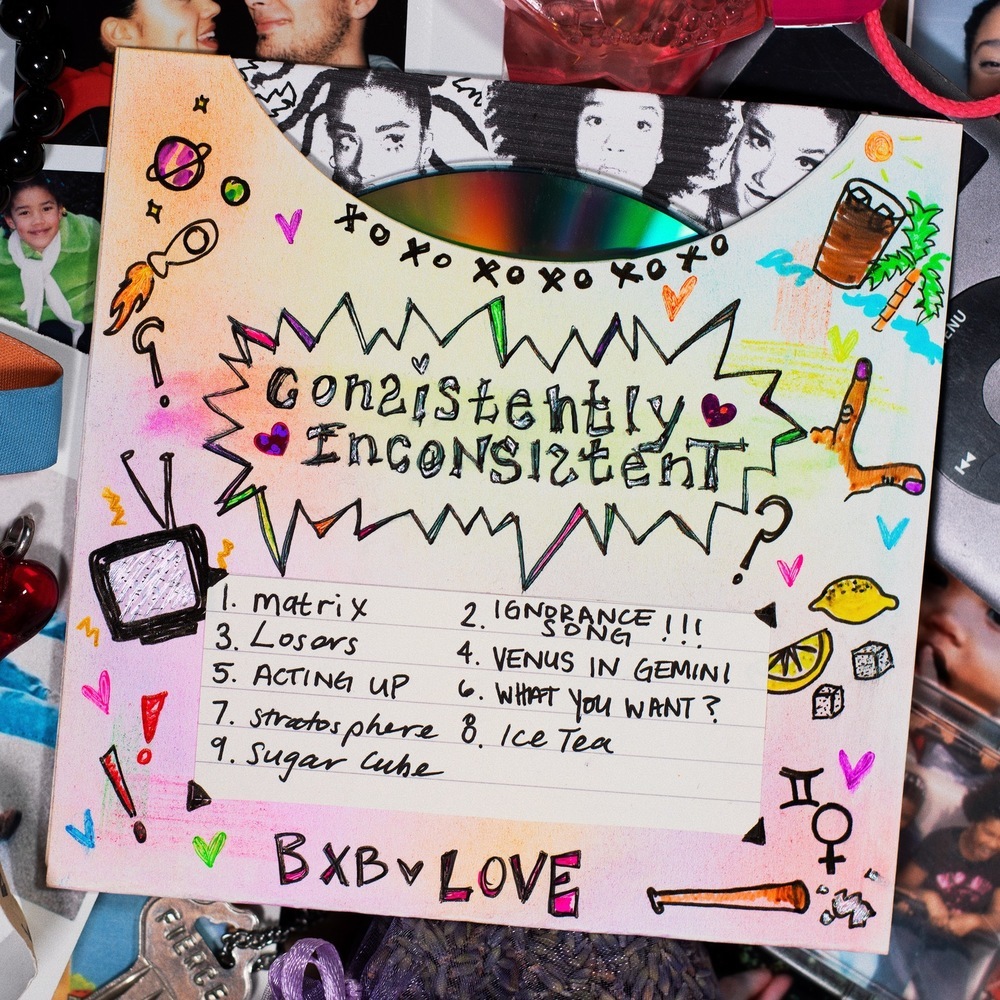 XOXO XOXO XOXO
Conzistently
INCONSIZtenT
1. matrix
2. IGNORANCE SONG !!!
3. Losers
4. VENUS IN GEMINI
5. ACTING UP
6. WHAT YOU WANT?
7. stratosphere
8. Ice Tea
9. Sugar Cube
BXB LOVE
MENU